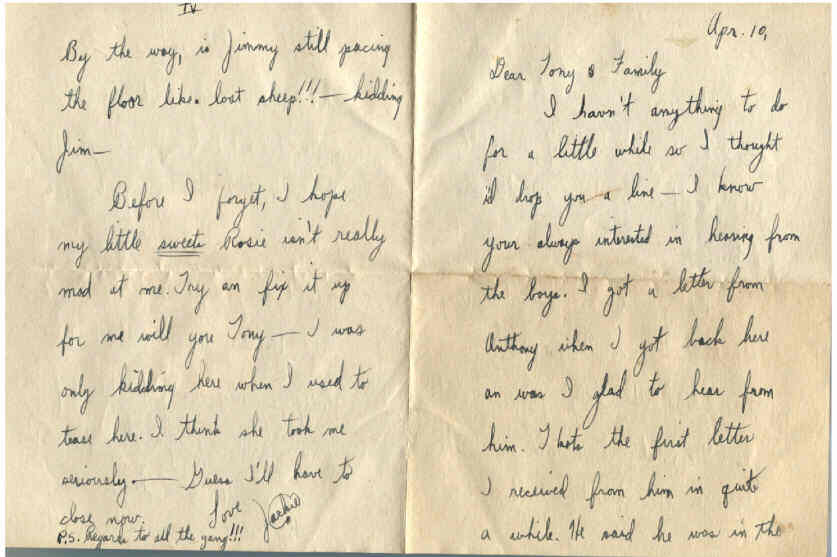 IV
By the way, is Jimmy still pacing
the floor like. lost sheep!!! — kidding
Jim —
Before I forget, I hope
my little sweets Rosie isn't really
mad at me. Try an fix it up
for me will you Tony — I was
only kidding here when I used to
tease here. I think she took me
seriously. — Guess I'll have to
close now.
Love
Jackie
P.S. Regards to all the gang!!!
Apr. 10,
Dear Tony & Family
I havn't anything to do
for a little while so I thought
id drop you a line — I know
your always interested in hearing from
the boys. I got a letter from
Anthony when I got back here
an was I glad to hear from
him. Thats the first letter
I received from him in quite
a while. He said he was in the